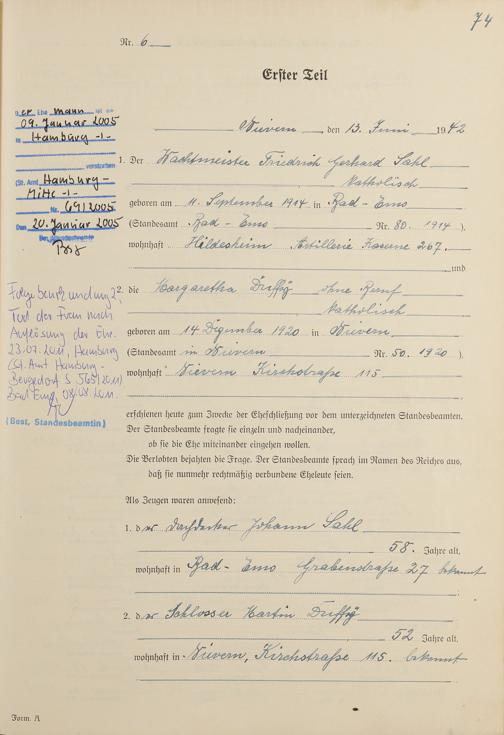 74
Nr. 6
Erster Teil
Nievern, den 13. Juni 1942
1. Der Wachtmeister Friedrich Gerhard Sahl
Katholisch
geboren am 11. September 1914 in Bad-Ems
(Standesamt Bad-Ems Nr. 80. 1914).
wohnhaft Hildesheim Artillerie Kaserne 267.
und
2. die Margaretha Duffÿ ohne Beruf
Katholisch
geboren am 14 Dezember 1920 in Nievern
(Standesamt in Nievern Nr. 50. 1920).
wohnhaft Nievern Kirchstraße 115
erschienen heute zum Zwecke der Eheschließung vor dem unterzeichneten Standesbeamten.
Der Standesbeamte fragte sie einzeln und nacheinander,
ob sie die Ehe miteinander eingehen wollen.
Die Verlobten bejahten die Frage. Der Standesbeamte sprach im Namen des Reiches aus,
daß sie nunmehr rechtmäßig verbundene Eheleute seien.
Als Zeugen waren anwesend:
1. der Dachdecker Johann Sahl
58. Jahre alt,
wohnhaft in Bad-Ems Grabenstraße 27 bekannt
2. der Schlosser Martin Duffÿ
52 Jahre alt,
wohnhaft in Nievern, Kirchstraße 115. bekannt
Form. A
Der Ehemann ist am
09. Januar 2005
in Hamburg -1-
verstorben
(St. Amt Hamburg-
Mitte -1-
Nr. 69/2005
Den 20. Januar 2005
Der Standesbeamte
Folgebeurkundung 2,
Tod der Frau nach
Auflösung der Ehe
23.07.2011, Hamburg
(St. Amt Hamburg-
Bergedorf S 565/2011)
Bad Ems, 08.08.2011
(Best, Standesbeamtin)